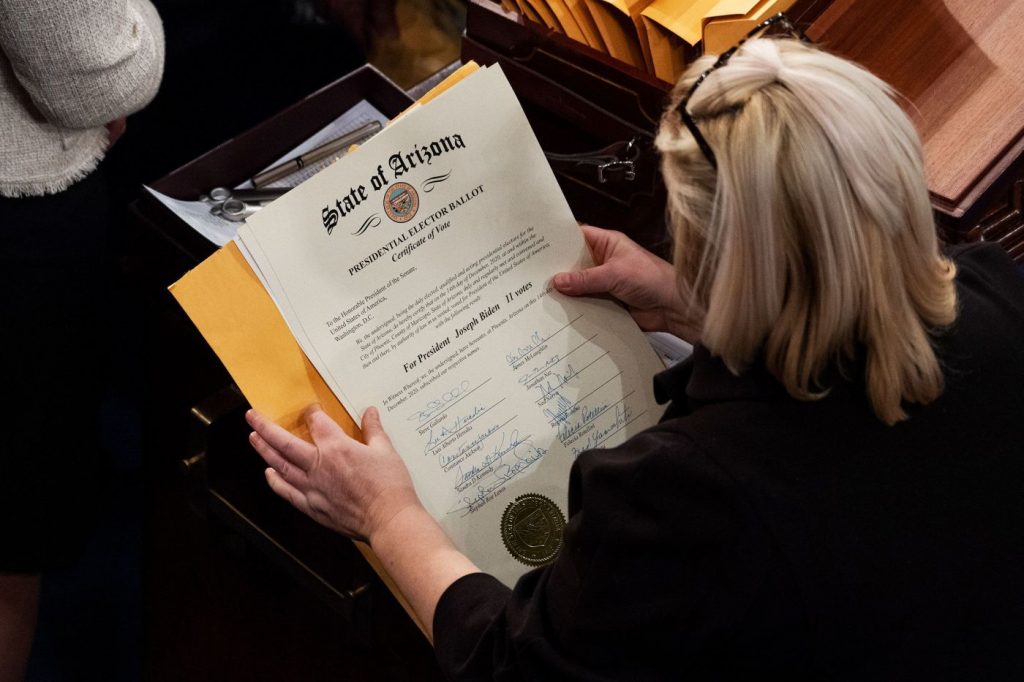 State of Arizona
PRESIDENTIAL ELECTOR BALLOT
Certificate of Vote
To the Honorable President of the Senate,
United States of America,
Washington, D.C.
We, the undersigned, being the duly elected, qualified and acting presidential electors for the
State of Arizona, do hereby certify that on the 14th day of December, 2020, at and within the
City of Phoenix, County of Maricopa, State of Arizona, duly and regularly met and convened and
then and there, by authority of law in us vested, voted for President of the United States of America,
with the following result:
For President Joseph Biden 11 votes
In Witness Whereof, we, the undersigned, have hereunto, at Phoenix, Arizona on this 14th
December, 2020, subscribed our respective names.
Steve Gallardo
James McLaughlin
Luis Alberto Heredia
Jonathan Nez
Constance Jackson
Ned Norris
Sandra D. Kennedy
Regina Romero
Stephen Roe Lewis
Felecia Rotellini